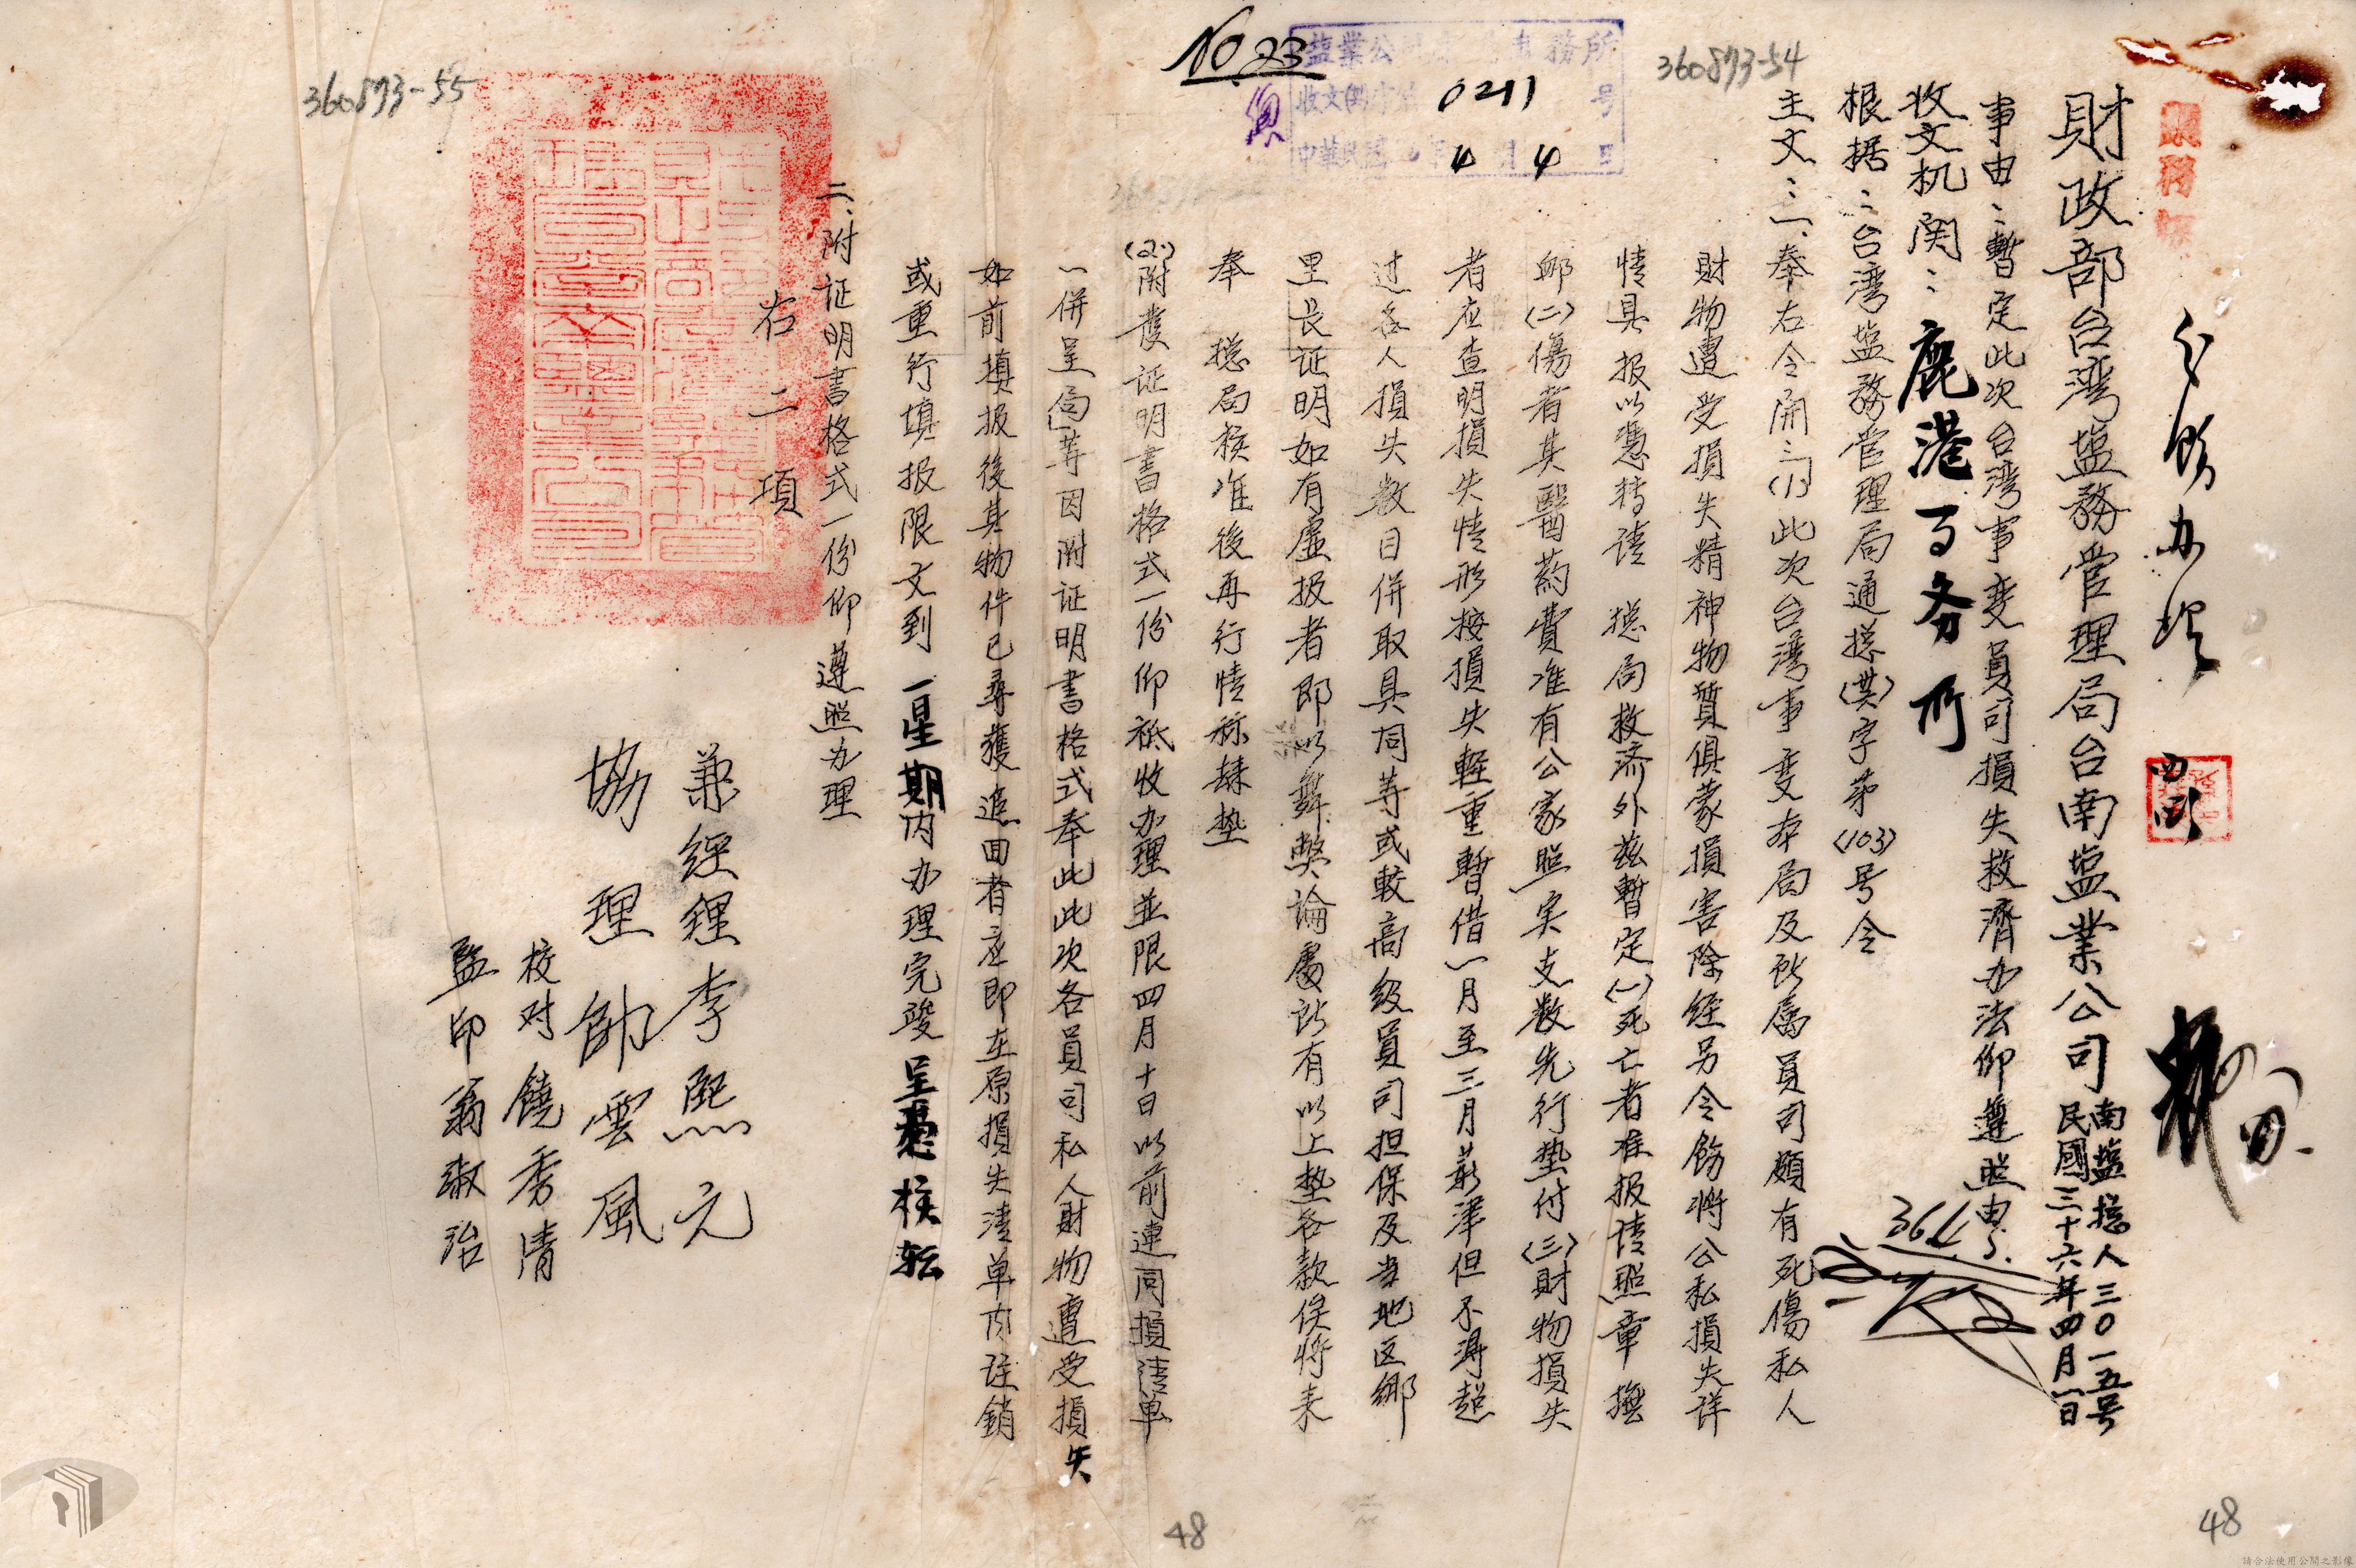 360873-54
360873-55
No 23
0211
4 4
财政部台湾塩務管理局台南塩業公司
南塩总人三〇一五号
民國三十六年四月一日
事由：暫定此次台湾事变員司損失救濟办法仰遵照由
收文机関：鹿港场务所
根据：台湾塩務管理局通总(其)字第(103)号令
主文：一、奉右令開：(1)此次台湾事变本局及所属員司頗有死傷私人
財物遭受損失精神物質俱蒙損害除經另令飭将公私損失详
情具报以憑转请 总局救济外兹暫定(一)死亡者准报请照章撫
卹(二)傷者其醫葯費准有公家照実支数先行垫付(三)財物損失
者应查明損失情形按損失軽重暫借一月至三月薪津但不得超
过各人損失数目併取具同等或較高級員司担保及当地区鄉
里长证明如有虚报者即以舞弊論處所有以上垫各款俟将来
奉 总局核准後再行情称肆垫
(2)附發证明書格式一份仰祗收办理並限四月十日以前連同損清单
一併呈局等因附证明書格式奉此此次各員司私人財物遭受損失
如前填报後其物件已尋獲追回者应即在原損失清单内註銷
或重行填报限文到一星期内办理完竣呈憑核転
二、附证明書格式一份仰遵照办理
右二項
兼經理李熙元
協理帥雲風
校对饒秀清
監印翁淑治
364
48
48
請合法使用公開之影像